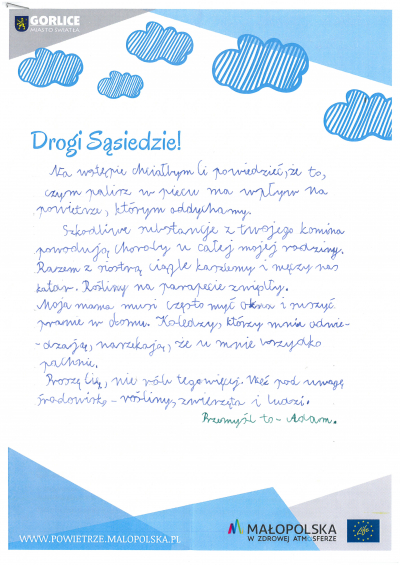 GORLICE
MIASTO ŚWIATŁA
Drogi Sąsiedzie!
Na wstępie chciałbym Ci powiedzieć, że to,
czym palisz w piecu ma wpływ na
powietrze, którym oddychamy.
Szkodliwe substancje z twojego komina
powodują choroby u całej mojej rodziny.
Razem z siostrą ciągle kaszlemy i męczy nas
katar. Rośliny na parapecie zwiędły.
Moja mama musi często myć okna i suszyć
pranie w domu. Koledzy, którzy mnie odwie-
dzają, narzekają, że u mnie wszystko
pachnie.
Proszę Cię, nie rób tego więcej. Weź pod uwagę
środowisko - rośliny, zwierzęta i ludzi.
Przemyśl to - Adam.
WWW.POWIETRZE.MALOPOLSKA.PL
MAŁOPOLSKA
W ZDROWEJ ATMOSFERZE
Life